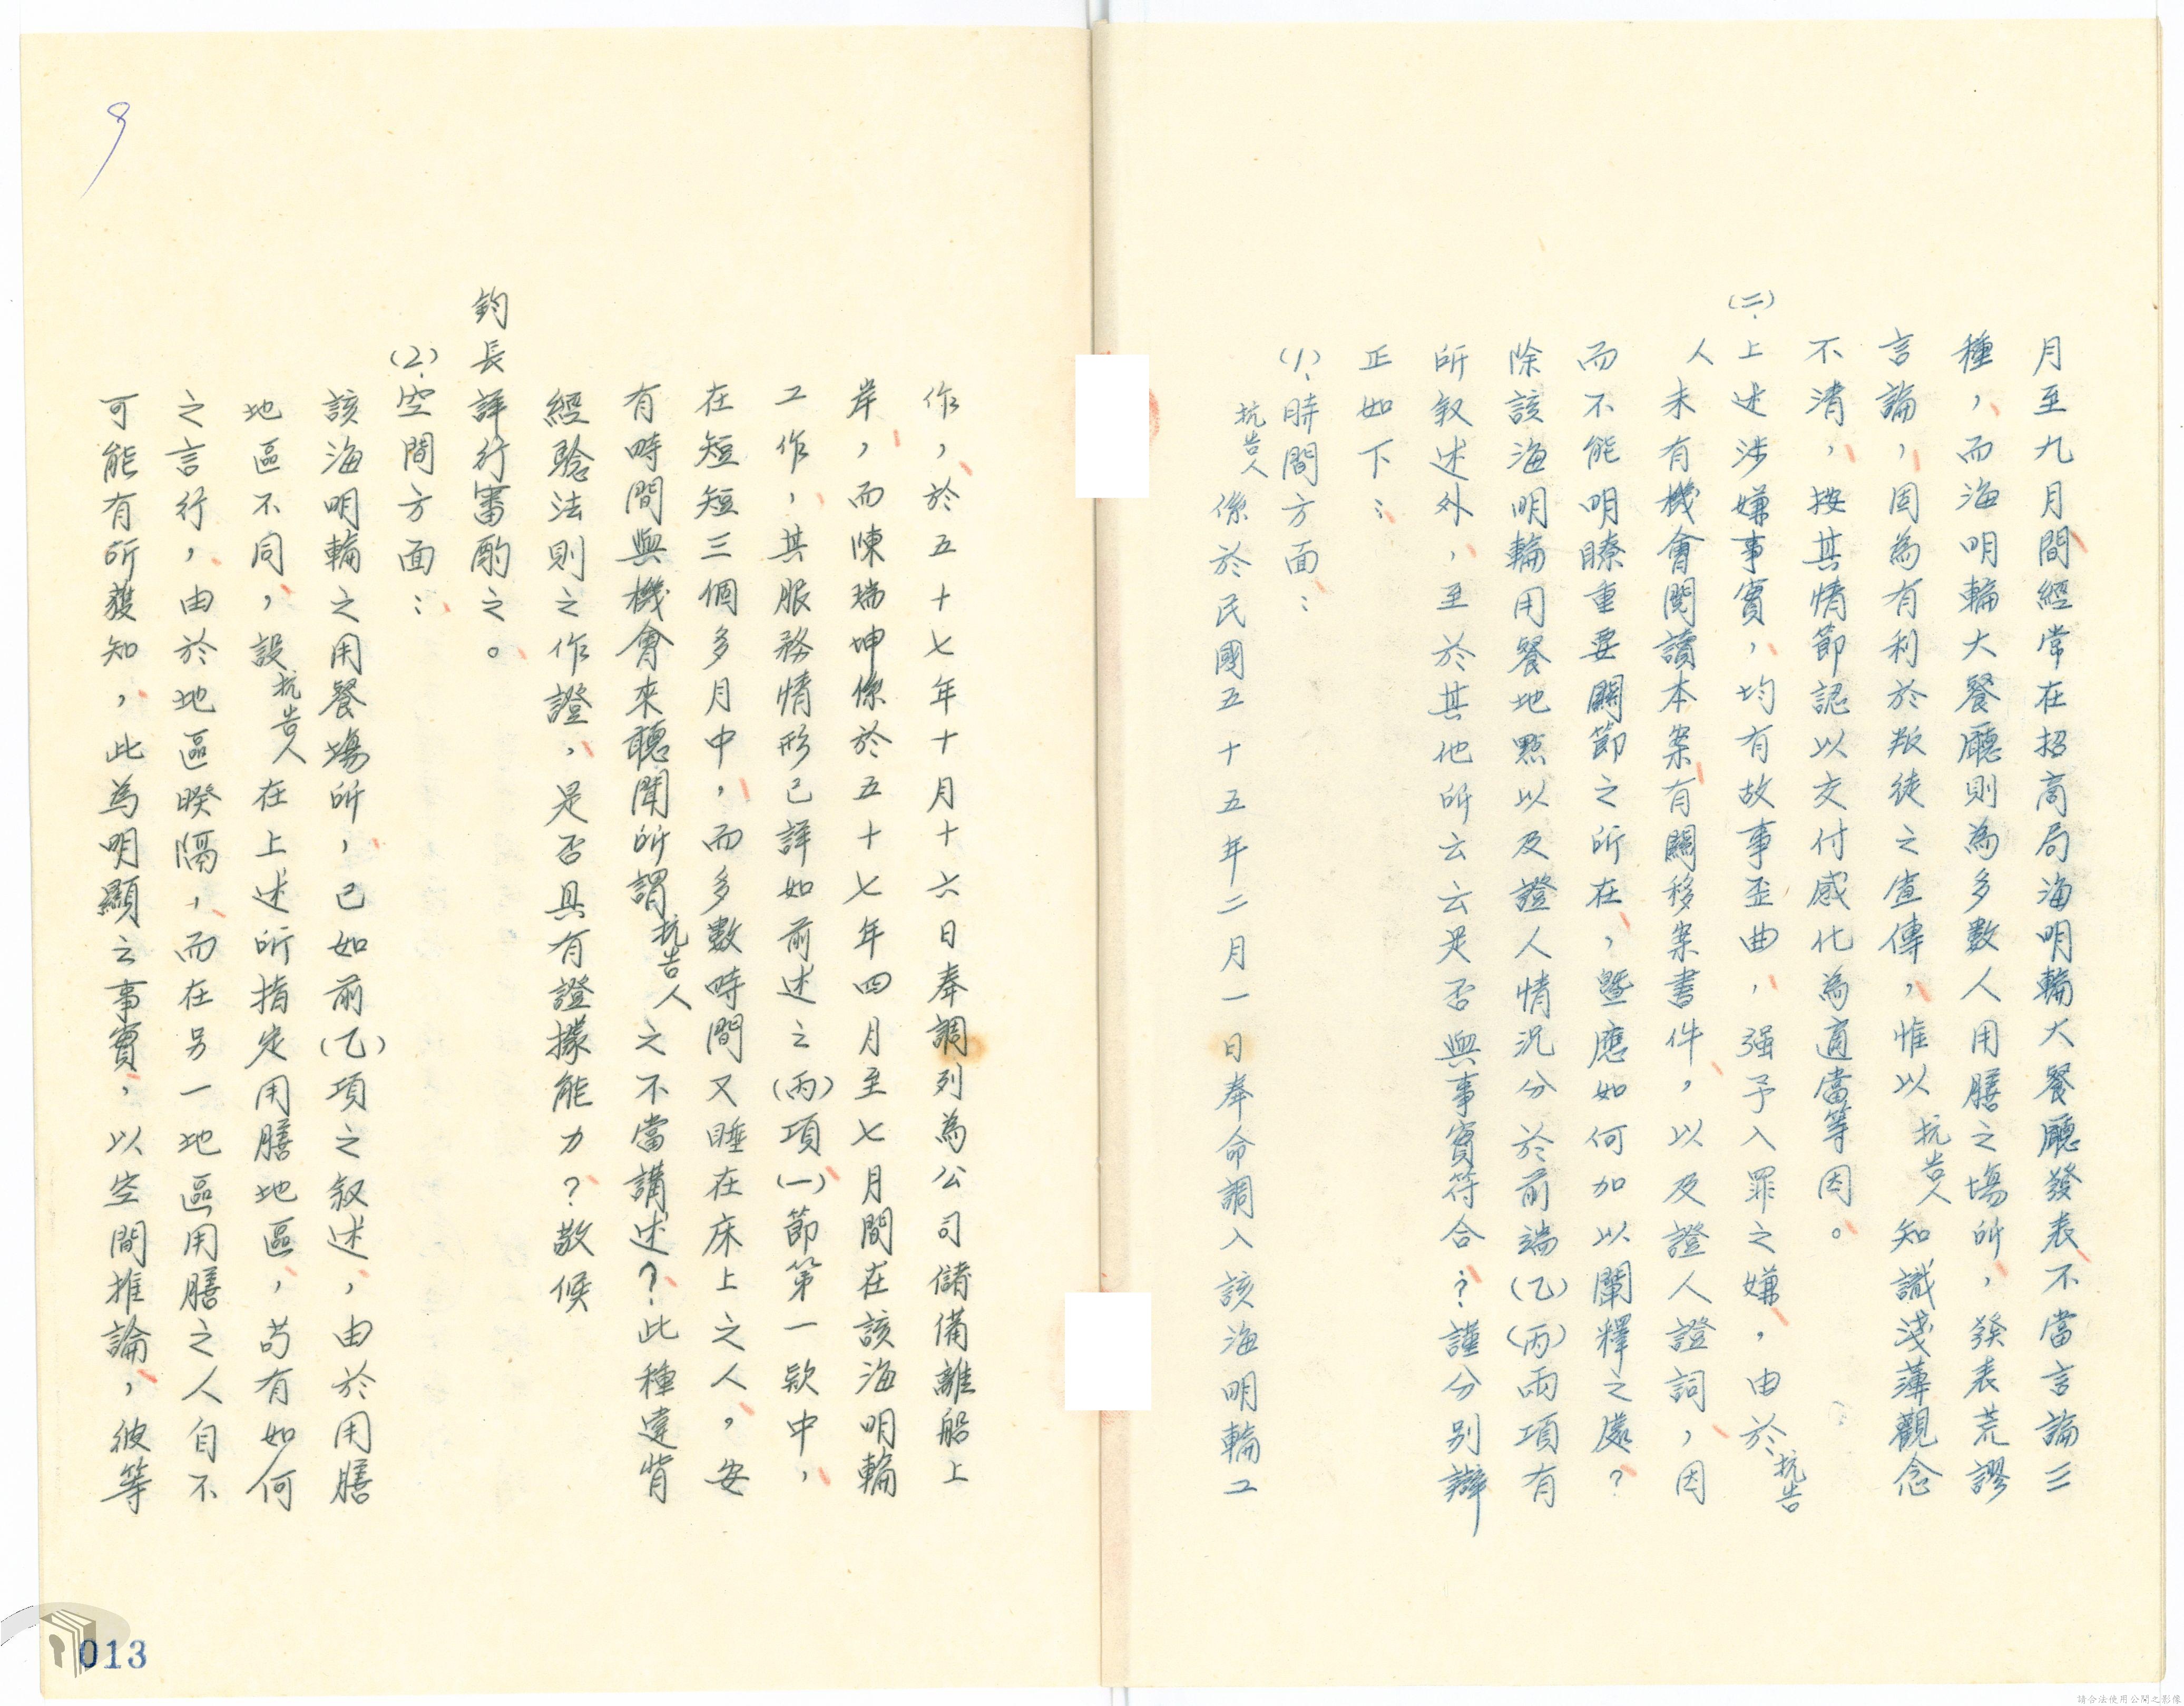 月至九月間經常在招商局海明輪大餐廳發表不當言論三
種，而海明輪大餐廳則為多數人用膳之場所，發表荒謬
言論，固為有利於叛徒之宣傳，惟以抗告人知識淺薄觀念
不清，按其情節認以交付感化為適當等因。
(二)、上述涉嫌事實，均有故事歪曲，强予入罪之嫌，由於抗告
人未有機會閱讀本案有關移案書件，以及證人證詞，因
而不能明瞭重要關節之所在，暨應如何加以闡釋之處？
除該海明輪用餐地點以及證人情況分於前端(乙)(丙)兩項有
所敘述外，至於其他所云云是否與事實符合？謹分別辯
正如下：
(1)、時間方面：
抗告人係於民國五十五年二月一日奉命調入該海明輪工
作，於五十七年十月十六日奉調列為公司儲備離船上
岸，而陳瑞坤係於五十七年四月至七月間在該海明輪
工作，其服務情形已詳如前述之(丙)項(一)節第一款中，
在短短三個多月中，而多數時間又睡在床上之人，安
有時間與機會來聽聞所謂抗告人之不當講述？此種違背
經驗法則之作證，是否具有證據能力？敬候
鈞長詳行審酌之。
(2)、空間方面：
該海明輪之用餐場所，已如前(乙)項之敘述，由於用膳
地區不同，設抗告人在上述所指定用膳地區，苟有如何
之言行，由於地區暌隔，而在另一地區用膳之人自不
可能有所獲知，此為明顯之事實，以空間推論，彼等
9
013
請合法使用公開之影像